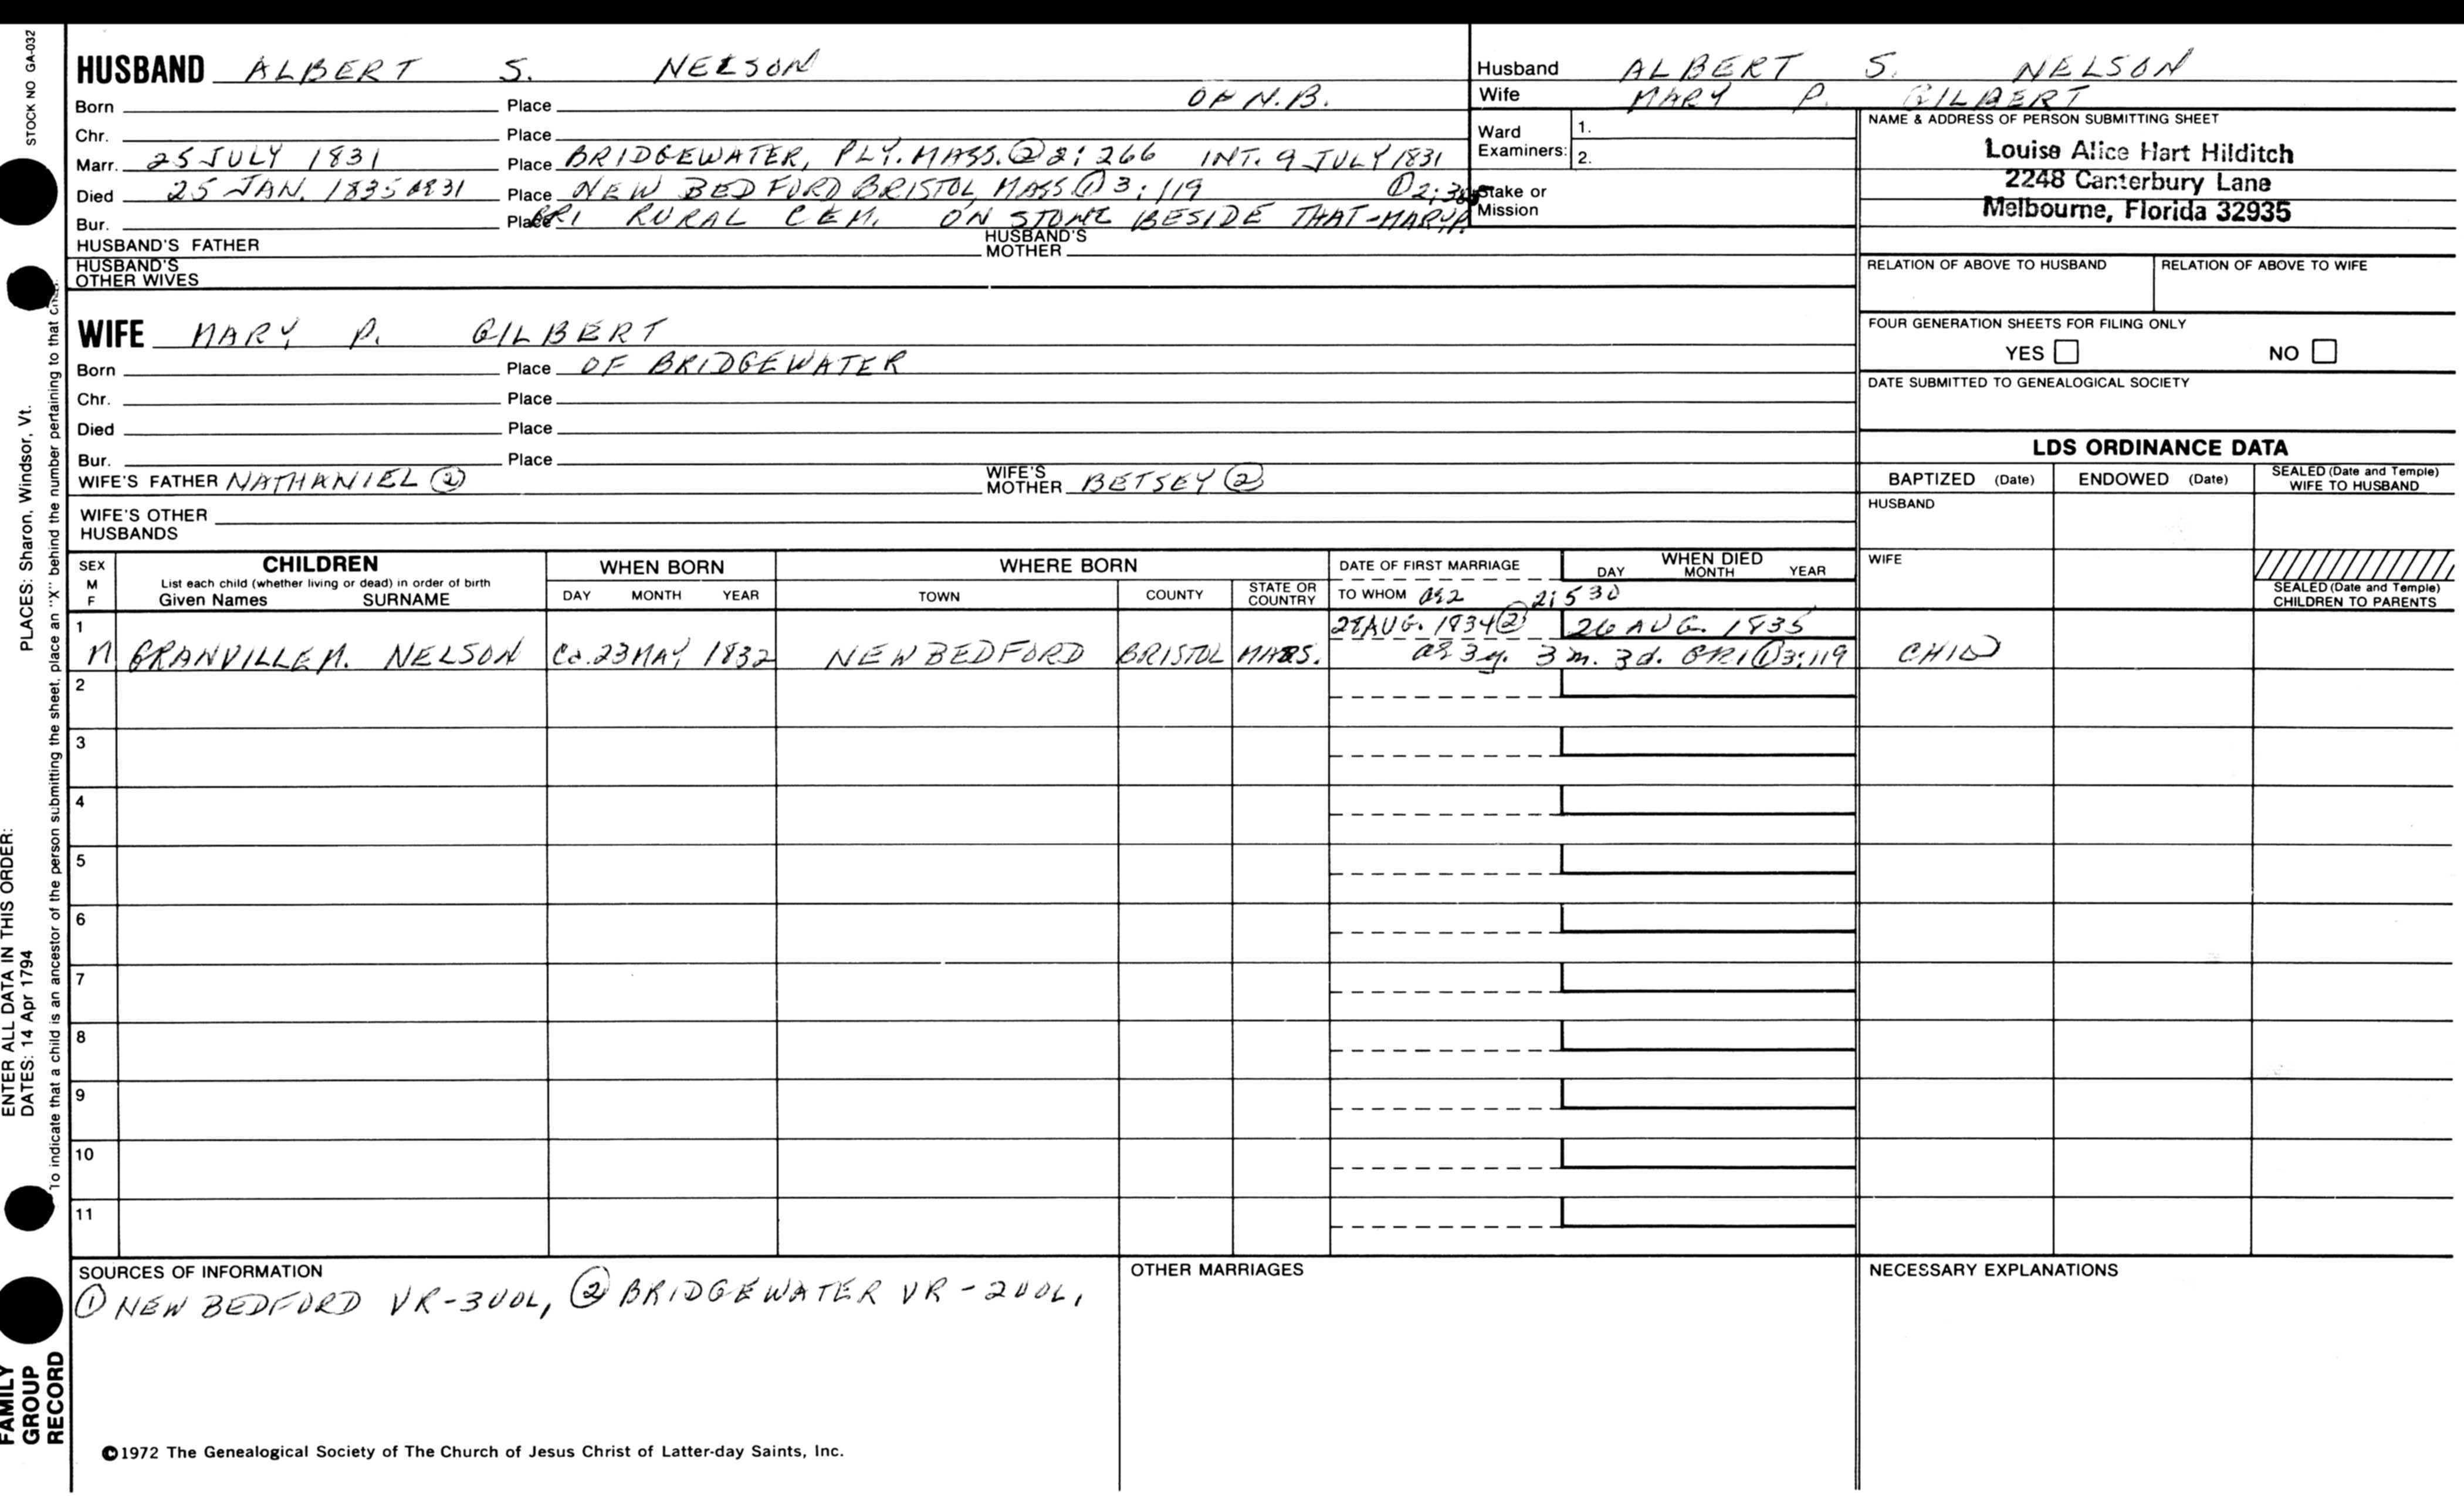 STOCK NO GA-032
HUSBAND ALBERT S. NELSON
Born Place OF N.B.
Chr. Place
Marr. 25 JULY 1831 Place BRIDGEWATER, PLY. MASS. ② 2:266 INT. 9 JULY 1831
Died 25 JAN. 1835 Place NEW BEDFORD BRISTOL, MASS ① 3:119
Bur. Place RURAL CEM. ON STONE BESIDE THAT-MARY P.
HUSBAND'S FATHER HUSBAND'S MOTHER
HUSBAND'S OTHER WIVES
Husband ALBERT S. NELSON
Wife MARY P. GILBERT
Ward Examiners: 1.
2.
Stake or Mission
NAME & ADDRESS OF PERSON SUBMITTING SHEET
Louise Alice Hart Hilditch
2248 Canterbury Lane
Melbourne, Florida 32935
RELATION OF ABOVE TO HUSBAND RELATION OF ABOVE TO WIFE
FOUR GENERATION SHEETS FOR FILING ONLY
YES NO
DATE SUBMITTED TO GENEALOGICAL SOCIETY
WIFE MARY P. GILBERT
Born Place OF BRIDGEWATER
Chr. Place
Died Place
Bur. Place
WIFE'S FATHER NATHANIEL ② WIFE'S MOTHER BETSEY ②
WIFE'S OTHER HUSBANDS
LDS ORDINANCE DATA
BAPTIZED (Date) ENDOWED (Date) SEALED (Date and Temple) WIFE TO HUSBAND
HUSBAND
WIFE
SEALED (Date and Temple) CHILDREN TO PARENTS
SEX M F
CHILDREN
List each child (whether living or dead) in order of birth
Given Names SURNAME
WHEN BORN
DAY MONTH YEAR
WHERE BORN
TOWN COUNTY STATE OR COUNTRY
DATE OF FIRST MARRIAGE
TO WHOM 2:530
WHEN DIED
DAY MONTH YEAR
1 28 AUG. 1834 ② 26 AUG. 1835
M GRANVILLE M. NELSON Ca. 23 MAY 1832 NEW BEDFORD BRISTOL MASS. 3y. 3m. 3d. GR1 ① 3:119 CHILD
2
3
4
5
6
7
8
9
10
11
SOURCES OF INFORMATION
① NEW BEDFORD VR-3VOL, ② BRIDGEWATER VR-2VOL,
OTHER MARRIAGES
NECESSARY EXPLANATIONS
©1972 The Genealogical Society of The Church of Jesus Christ of Latter-day Saints, Inc.
FAMILY
GROUP
RECORD
ENTER ALL DATA IN THIS ORDER:
DATES: 14 Apr 1794
PLACES: Sharon, Windsor, Vt.
To indicate that a child is an ancestor of the person submitting the sheet, place an "X" behind the number pertaining to that